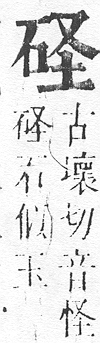 硁
古壞切音怪
硁石似玉